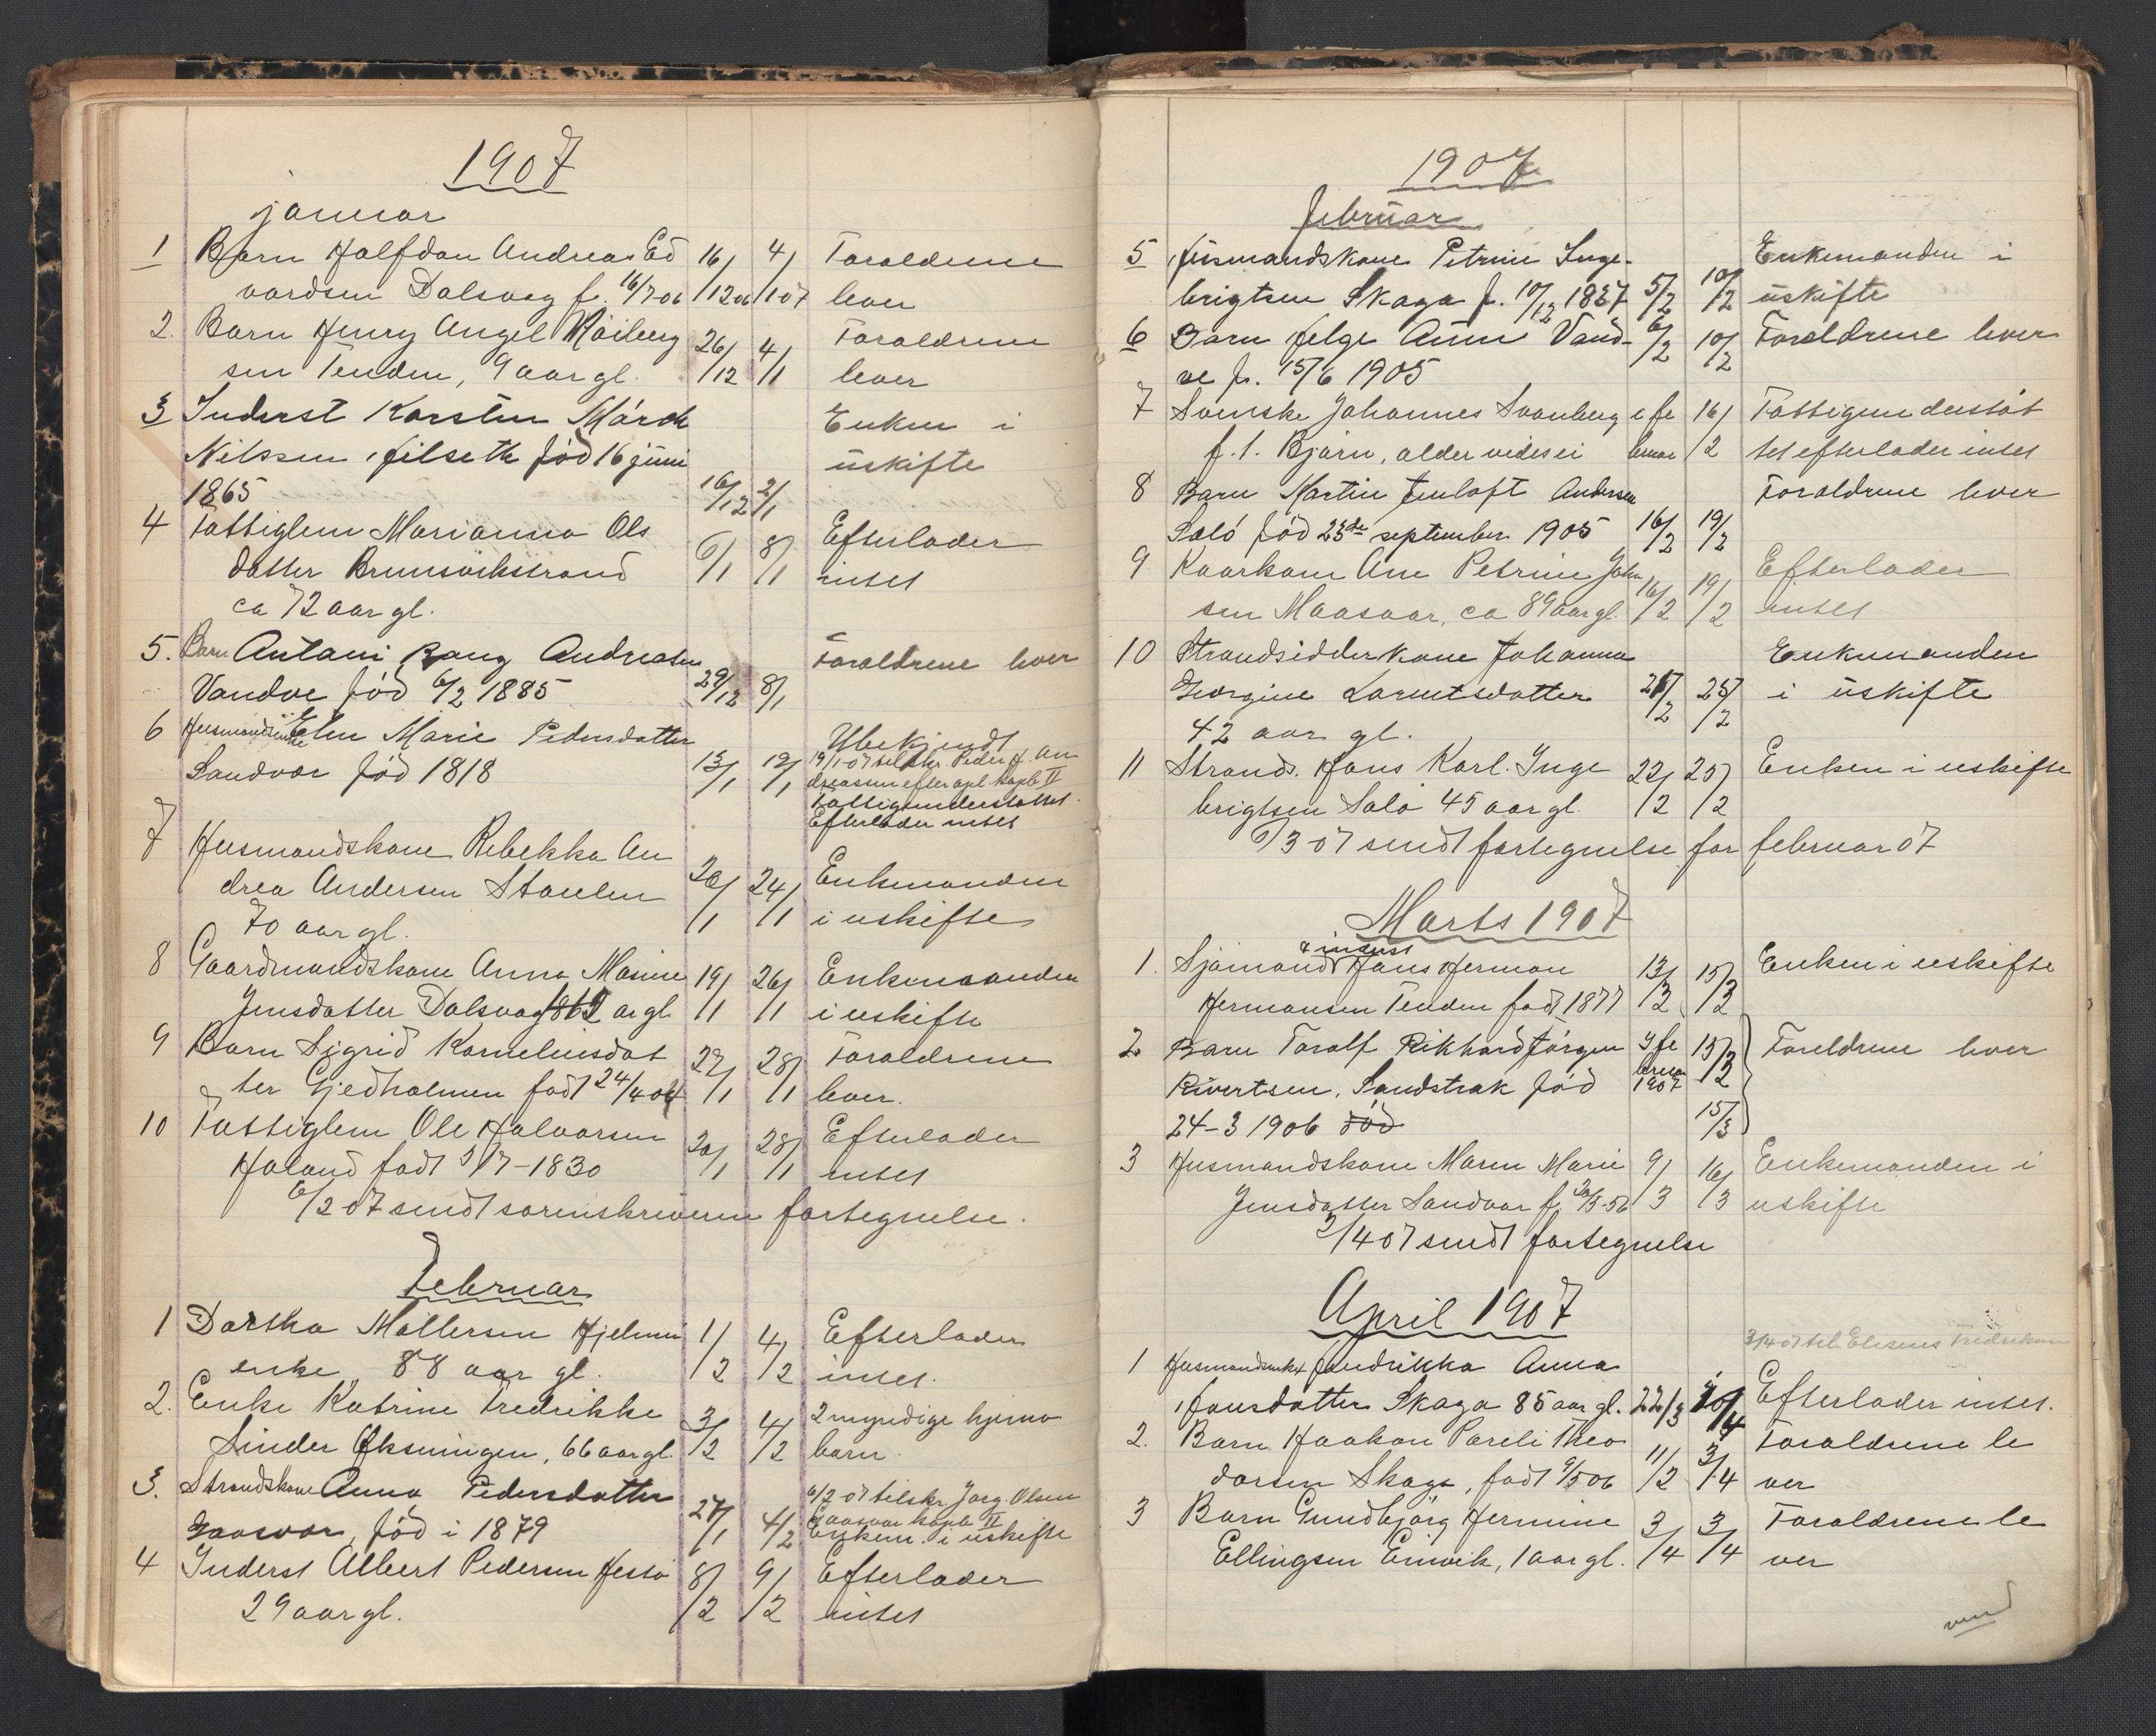 1907
januar
1 Barn Halfdan Andreas Ed 16/ 4/ Forældrene
vardsen Dalsvag f. 16/7 06 /12 06 /1 07 lever
2. Barn Henry Angel Røiberg 26 4/ Forældrene
sen Tenden, 9 aar gl. /12 /1 lever
3 Inderst Karsten Mårck Enken i
Nilssen Hilseth fød 16 juni uskifte
1865 16/12 2/1
4 Fattiglem Marianna Ols 6/1 8/1 Efterlader
datter Brunsvikstrand intet
ca 72 aar gl.
5. Barn Antoni Bang Andreasen Forældrene lever
Vandve fød 6/2 1885 29/12 8/1
6 Husmandsenke Elen Marie Pedersdatter Ubekjendt
Sandvær fød 1818 13/1 19/1 19/1 07 tilskr. Peder H. An
dreasen efter opl. kopb II
Fattigunderstøttet.
Efterlader intet
7 Husmandskone Rebekka An
drea Andersen Staulen 20/1 24/1 Enkemanden
70 aar gl. i uskifte
8 Gaardmandskone Anna Masine 19/ 26/ Enkemanden
Jensdatter Dalsvag 62 ar gl. /1 /1 i uskifte
9 Barn Sigrid Korneliusdat 22/ 28/ Forældrene
ter Gjedholmen født 24/4 04 /1 /1 lever.
10 Fattiglem Ole Halvorsen 20/1 28/ Efterlader
Høland født 5/7-1830 /1 intet
6/2 07 sendt sorenskriveren fortegnelse.
Februar
1 Dorthea Møllersen Hjelmen 1/ 4/ Efterlader
enke, 88 aar gl. /2 /2 intet.
2. Enke Katrine Fredrikke 3/ 4/ 2 myndige hjemm
Sinder Øksningen, 66 aar gl. /2 /2 barn.
3. Strandskone Anna Pedersdatter 6/2 07 tilskr Jørg. Olsen
Gaasvær, fød i 1879 27/1 4/2 Gaasvær kopb II
Enkem. i uskifte
4 Inderst Albert Pedersen Hestø 8/ 9/ Efterlader
29 aar gl. /2 /2 intet
1907
februar
5 Husmandskone Petrine Inge- Enkemanden i
brigtsen Skaga f. 10/12 1837 5/2 10/2 uskifte
6 Barn Helge Aune Vand- 6/2 10/2 Forældrene lever
ve f. 15/6 1905
7 Svenske Johannes Svanberg i fe 16/ Fattigunderstøt
f. t. Bjørn, alder vides ei bruar /2 tet efterlader intet
8 Barn Martin Jenloft Andersen Forældrene lever
Salø fød 23de september 1905 16/2 19/2
9 Kaarkone Ane Petrine John Efterlader
sen Maasvær, ca 89 aar gl. 16/2 19/2 intet
10 Strandsidderkone Johanna Enkemanden
Georgine Lorentsdatter 21/2 25/2 i uskifte
42 aar gl.
11 Strands. Hans Karl. Inge 22/ 25/ Enken i uskifte
brigtsen Salø 45 aar gl. /2 /2
6/3 07 sendt fortegnelse for februar 07
Marts 1907
& inderst
1. Sjømand Hans Herman 13/ 15/ Enken i uskifte
Hermansen Tenden født 1877 /3 /3
2 Barn Toralf Rikhard Jørgen 9 fe 15/3 Forældrene lever
Rivertsen, Sandstrak fød bruar 1907
24-3 1906 fød 15/3
3 Husmandskone Maren Marie 9/ 16/ Enkemanden i
Jensdatter Sandvær f. 20/5-56 /3 /3 uskifte
2/4 07 sendt fortegnelse
April 1907
3/4 07 til Elisæus Fredriksen
1 Husmandsenke Hendrikka Anna
Hansdatter Skaga 85 aar gl. 22/3 10/4 Efterlader intet.
2. Barn Haakon Pareli Theo 11/ 3/ Forældrene le
dorsen Skaga, født 9/5 06 /2 /4 ver
3 Barn Gundbjørg Hermine 3/ 3/ Forældrene le
Ellingsen Einvik, 1 aar gl. /4 /4 ver
vend